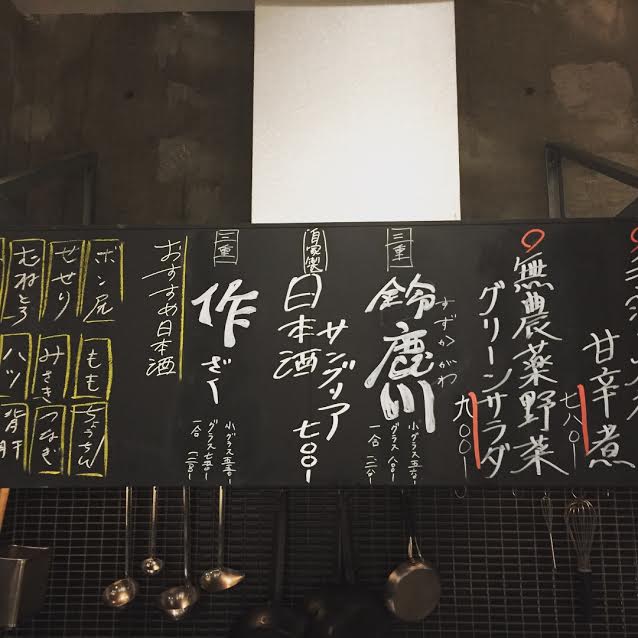 甘辛煮
七八〇ー
無農薬野菜
グリーンサラダ
九〇〇ー
三重
鈴鹿川
すずかがわ
小グラス 五六〇ー
グラス 八〇〇ー
一合
自家製
日本酒
サングリア
七〇〇ー
三重
作
ざく
小グラス 五三〇ー
グラス 七五〇ー
一合
おすすめ日本酒
ボン尻
せせり
むねとろ
もも
みさき
ハツ
ちょうちん
つなぎ
背肝